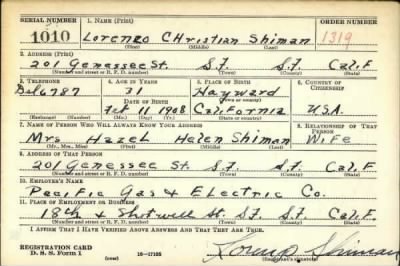 SERIAL NUMBER 1. NAME (Print) ORDER NUMBER
1010 Lorenzo CHristian Shiman 1319
(First) (Middle) (Last)
2. ADDRESS (Print)
201 Genessee St. S.F. S.F. Calif
(Number and street or R. F. D. number) (Town) (County) (State)
3. TELEPHONE 4. AGE IN YEARS 5. PLACE OF BIRTH 6. COUNTRY OF CITIZENSHIP
31 Hayward
DATE OF BIRTH (Town or county)
Feb 11 1908 California U.S.A.
(Exchange) (Number) (Mo.) (Day) (Yr.) (State or country)
7. NAME OF PERSON WHO WILL ALWAYS KNOW YOUR ADDRESS 8. RELATIONSHIP OF THAT PERSON
Mrs Hazel Helen Shiman Wife
(Mr., Mrs., Miss) (First) (Middle) (Last)
9. ADDRESS OF THAT PERSON
201 Genessee St. S.F. S.F. Calif.
(Number and street or R. F. D. number) (Town) (County) (State)
10. EMPLOYER'S NAME
Pacific Gas & Electric Co.
11. PLACE OF EMPLOYMENT OR BUSINESS
18th & Shotwell St. S.F. S.F. Calif.
(Number and street or R. F. D. number) (Town) (County) (State)
I AFFIRM THAT I HAVE VERIFIED ABOVE ANSWERS AND THAT THEY ARE TRUE.
REGISTRATION CARD
D. S. S. FORM 1 (over) 16-17105 Shiman
(Registrant's signature)